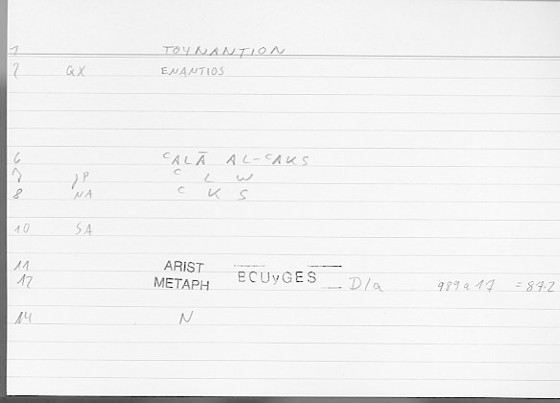 1 TOYNANTION
2 QX ENANTIOS
6 ᶜALĀ AL-ᶜAKS
7 JP ᶜ L W
8 NA ᶜ K S
10 SA
11 ARIST
12 METAPH BCUyGES D/a 989a17 =87.2
14 N